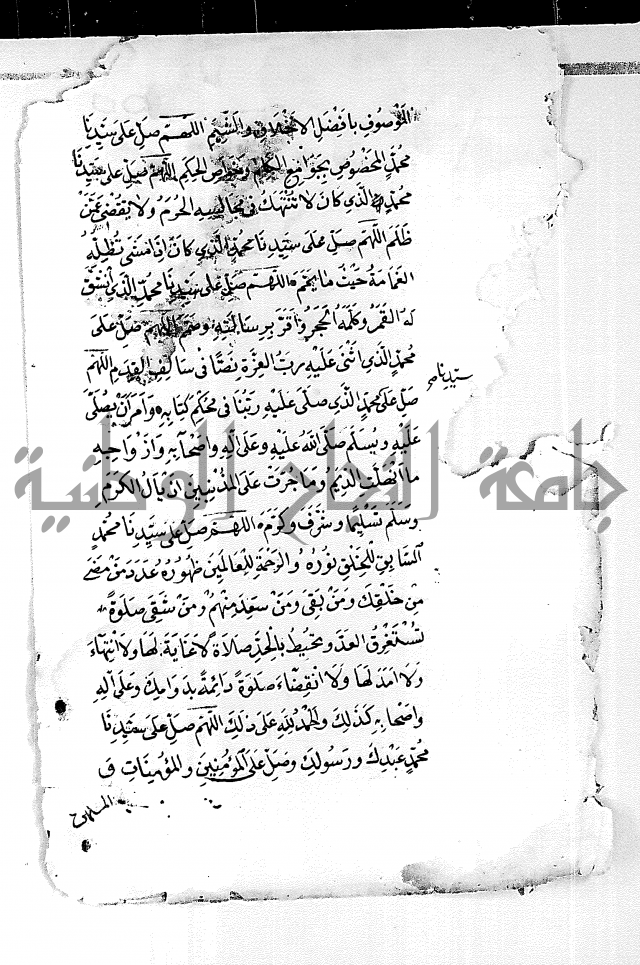 الموصوف بأفضل الاخلاق والشيم اللهم صل على سيدنا
محمد المخصوص بجوامع الكلم وخواص الحكم اللهم صل على سيدنا
محمد الذي كان لا تنتهك في مجالسه الحرم ولا يغضى عمن
ظلم اللهم صل على سيدنا محمد الذي كان اذا مشى تظلله
الغمامة حيث ما يمم اللهم صل على سيدنا محمد الذي انشق
له القمر وكلمه الحجر واقر برسالته وصمم اللهم صل على
سيدنا صح
محمد الذي اثنى عليه رب العزة نصا في سالف القدم اللهم
صل على محمد الذي صلى عليه ربنا في محكم كتابه وامر ان يصلى
عليه ويسلم صلى الله عليه وعلى اله واصحابه وازواجه
ما انهلت الديم وما جرت على المذنبين اذيال الكرم
وسلم تسليما وشرف وكرم اللهم صل على سيدنا محمد
السابق للخلق نوره والرحمة للعالمين ظهوره عدد من مضى
من خلقك ومن بقى ومن سعد منهم ومن شقى صلوة
تستغرق العد وتحيط بالحد صلاة لا غاية لها ولا انتهاء
ولا امد لها ولا انقضاء صلوة دائمة بدوامك وعلى اله
واصحابه كذلك والحمد لله على ذلك اللهم صل على سيدنا
محمد عبدك ورسولك وصل على المؤمنين والمؤمنات و
المسلمين
جامعة النجاح الوطنية